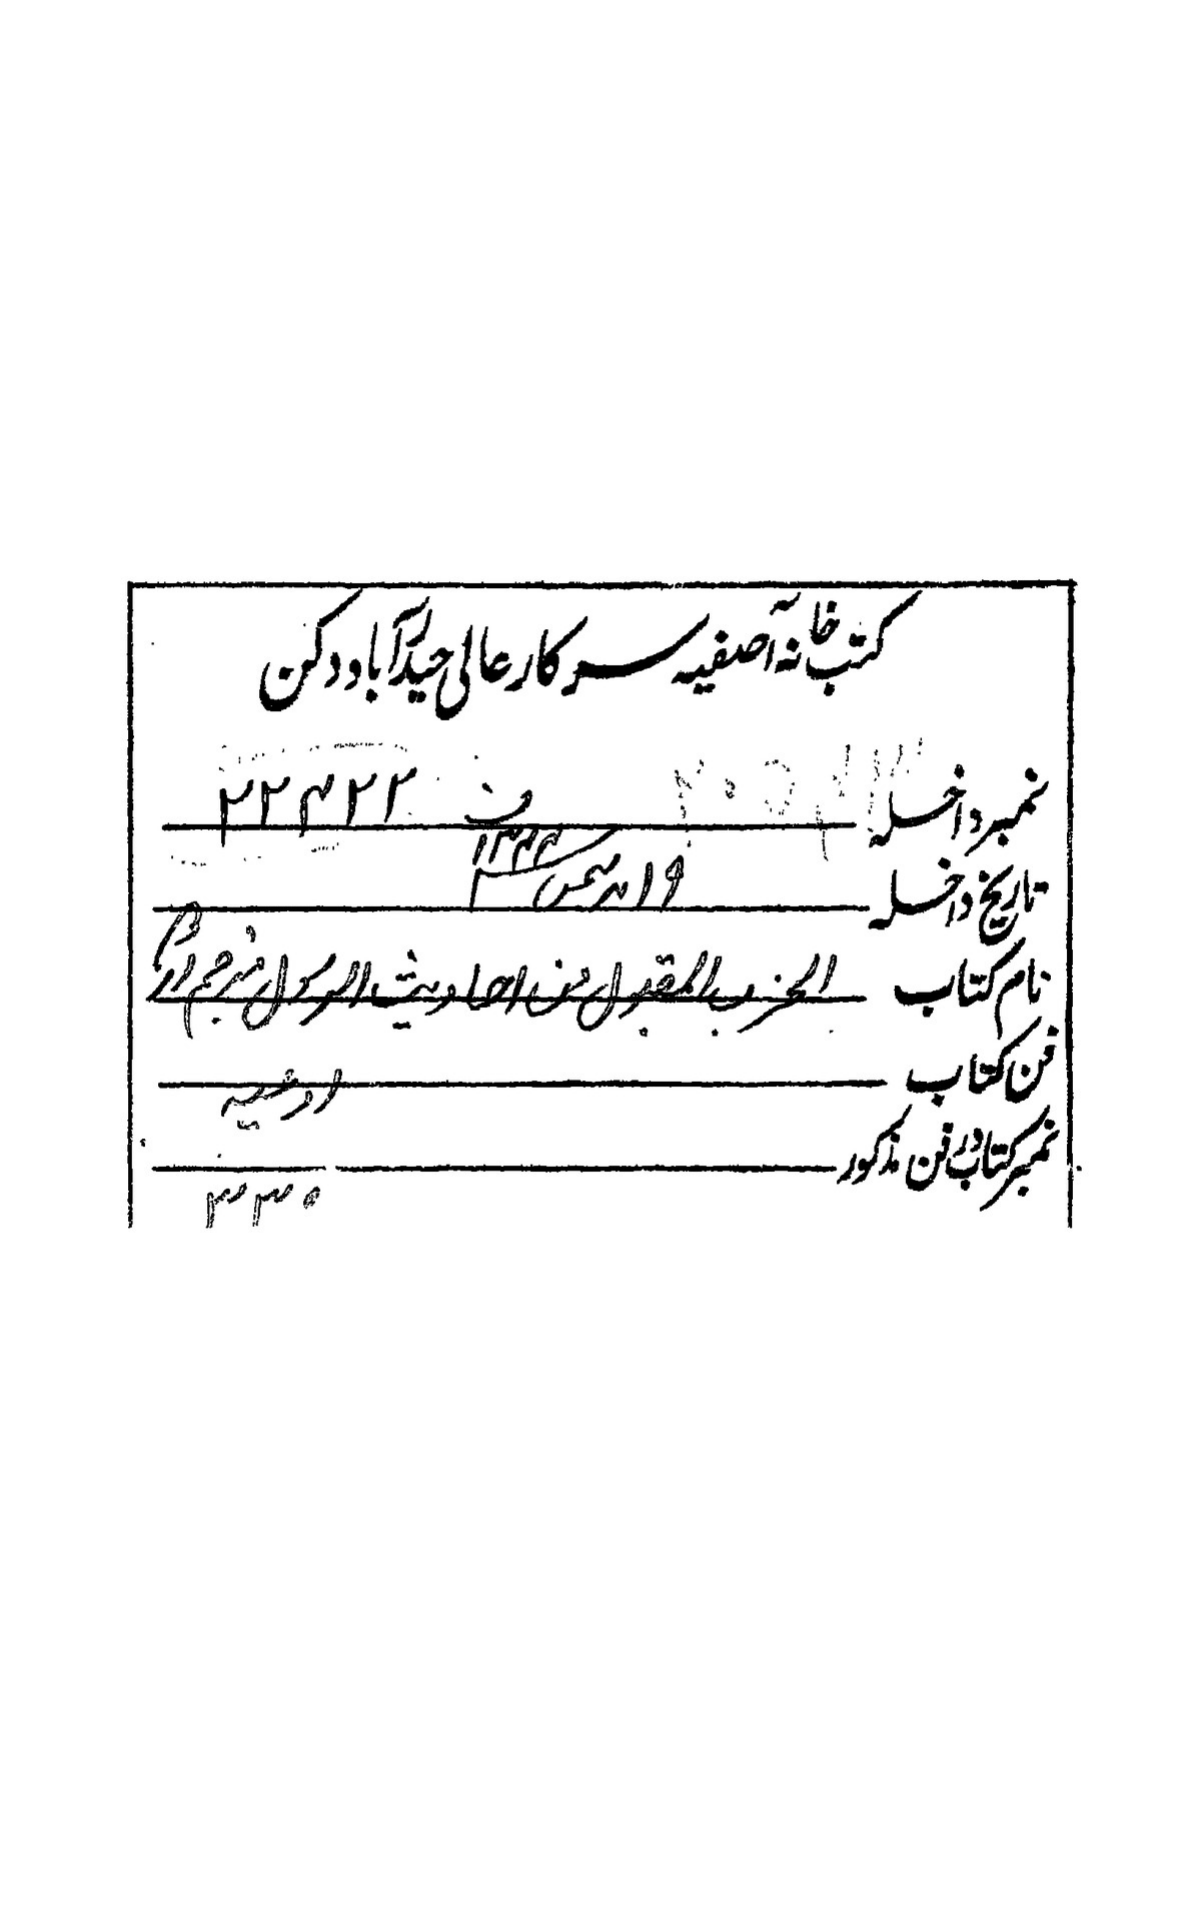 کتب خانہ آصفیہ سرکار عالی حیدرآباد دکن
نمبر داخلہ ۲۲۴۲۲
تاریخ داخلہ ۱۹
نام کتاب الحزب المقبول من احادیث الرسول مترجم اردو
فن کتاب ادعیہ
نمبر کتاب در فن مذکور ۳۳۵